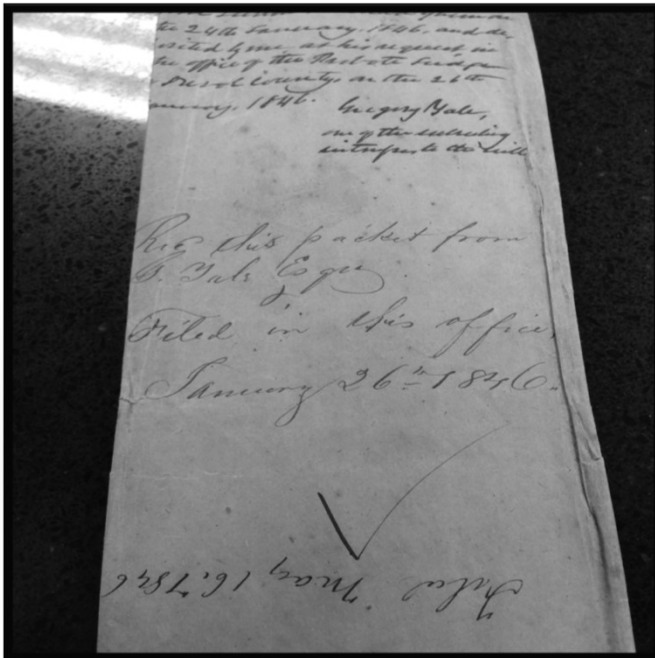 the 24th January, 1846, and de
posited by me at his request in
the office of the Probate Judge
Duval County, on the 26th
January, 1846.
Gregory Yale,
one of the subscribing
witnesses to the will
Rec this packet from
G. Yale Esqr
&
Filed in this office,
January 26th 1846.
Filed May 16, 1846